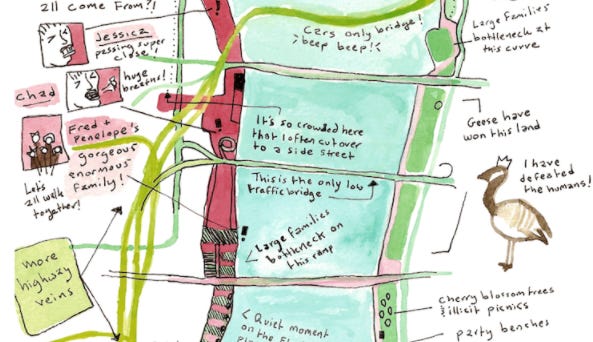 all come from?!
Jessica
passing super
close!
huge
breaths!
Chad
Fred +
Penelope's
gorgeous
enormous
family!
Let's
all walk
together!
more
highway
veins
Cars only bridge!
beep beep!
It's so crowded here
that I often cut over
to a side street
This is the only low
traffic bridge
Large families
bottleneck on
this ramp
< Quiet moment
on the
Large families
bottleneck at
this curve
Geese have
won this land
I have
defeated
the humans!
cherry blossom trees
& illicit picnics
party benches